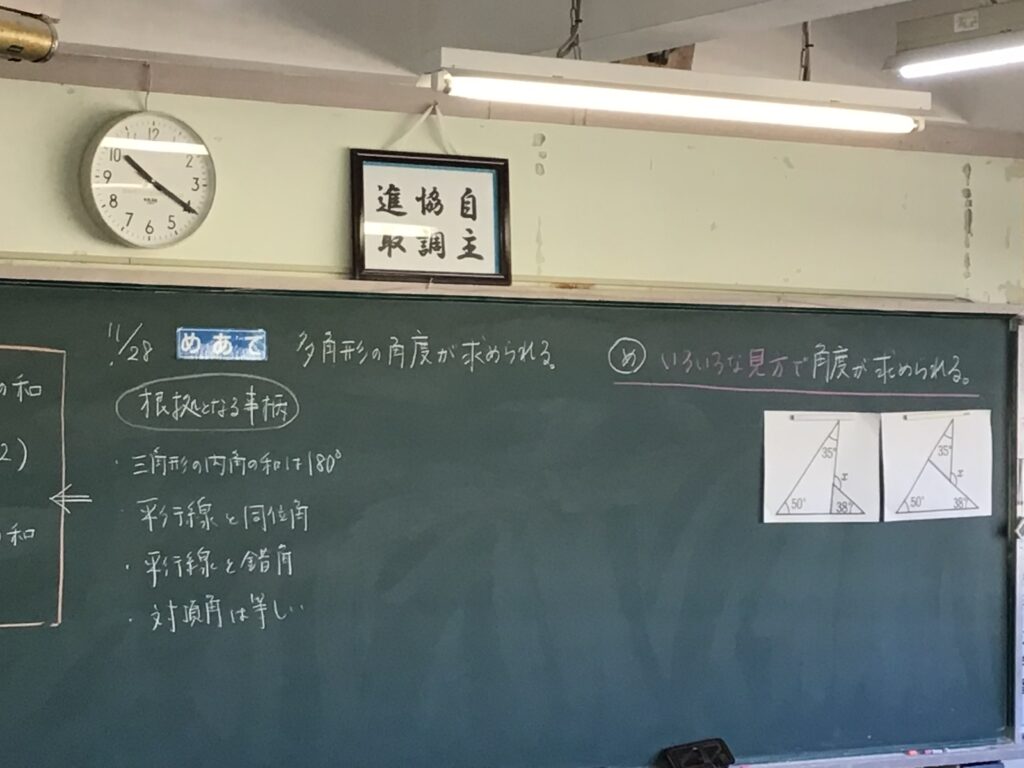 12
10
2
9
3
8
7
6
5
自主
協調
進取
の和
2)
の和
11/28 めあて 多角形の角度が求められる。
根拠となる事柄
・三角形の内角の和は180°
平行線と同位角
・平行線と錯角
・対頂角は等しい
め いろいろな見方で角度が求められる。
35°
x
50°
38°
35°
x
50°
38°